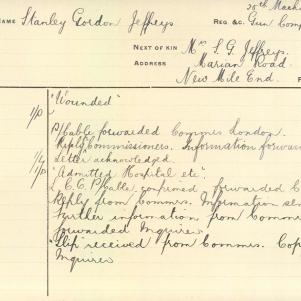 20th Mach
NAME Stanley Gordon Jeffreys REG &C. Gun Comp
NEXT OF KIN Mrs S. G. Jeffreys.
ADDRESS Marian Road.
New Mile End.
"Wounded"
P/Cable forwarded Commrs London.
Reply Commissioners. Information forwar
Letter acknowledged.
"Admitted Hospital etc"
C.C. P/Cable confirmed forwarded C
Reply from Commrs. Information sen
Further information from Comm
forwarded Inquirer
"Slip" received from Commrs. Cop
Inquirer